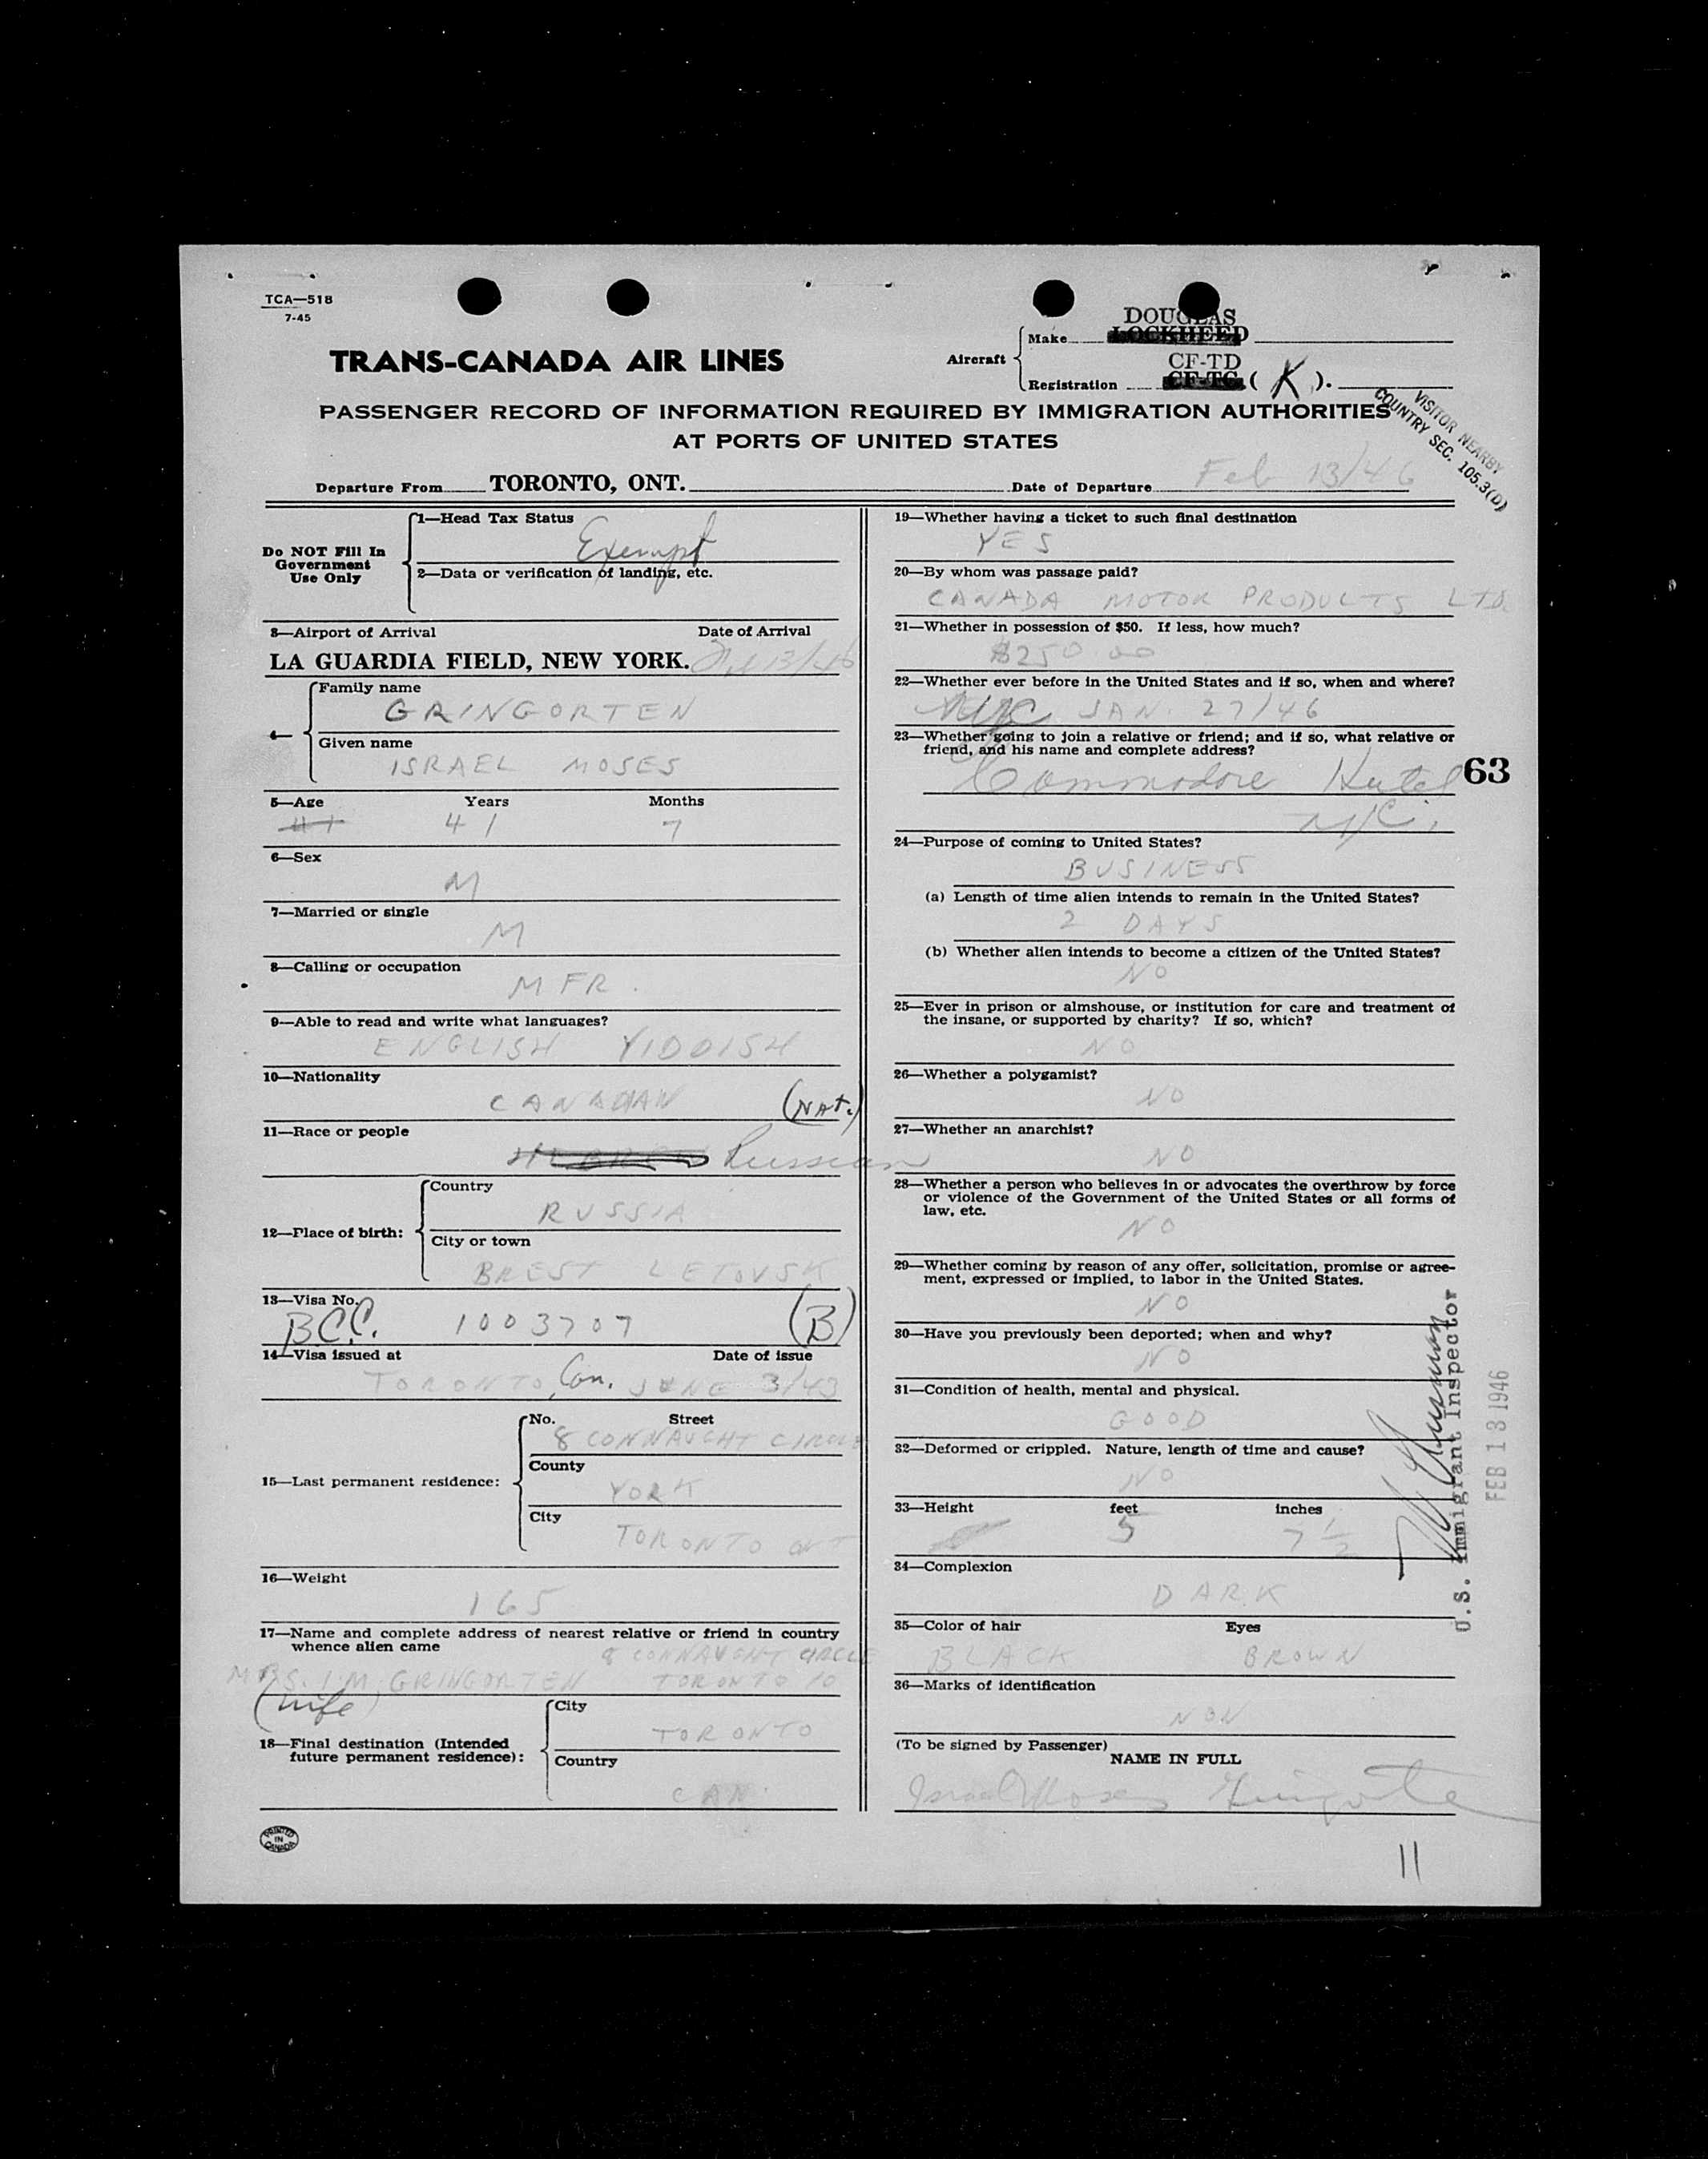 TCA—518
7-45
DOUGLAS
Make LOCKHEED
TRANS-CANADA AIR LINES
Aircraft
CF-TD
Registration CF-TC ( K ).
PASSENGER RECORD OF INFORMATION REQUIRED BY IMMIGRATION AUTHORITIES
AT PORTS OF UNITED STATES
VISITOR NEARBY
COUNTRY SEC. 105.3(D)
Departure From TORONTO, ONT. Date of Departure Feb 13/46
Do NOT Fill In
Government
Use Only
1—Head Tax Status
Exempt
2—Data or verification of landing, etc.
3—Airport of Arrival Date of Arrival
LA GUARDIA FIELD, NEW YORK. Feb 13/46
4—
Family name
GRINGORTEN
Given name
ISRAEL MOSES
5—Age Years Months
41 41 7
6—Sex
M
7—Married or single
M
8—Calling or occupation
MFR.
9—Able to read and write what languages?
ENGLISH YIDDISH
10—Nationality
CANADIAN (NAT.)
11—Race or people
HEBREW Russian
12—Place of birth:
Country
RUSSIA
City or town
BREST LETOVSK
13—Visa No.
BCC. 1003707 (B)
14—Visa issued at Date of issue
TORONTO, Can. JUNE 3/43
15—Last permanent residence:
No. Street
8 CONNAUGHT CIRCLE
County
YORK
City
TORONTO ONT
16—Weight
165
17—Name and complete address of nearest relative or friend in country
whence alien came
8 CONNAUGHT CIRCLE
MRS. I.M. GRINGORTEN TORONTO 10
(wife)
18—Final destination (Intended
future permanent residence):
City
TORONTO
Country
CAN.
PRINTED
IN
CANADA
19—Whether having a ticket to such final destination
YES
20—By whom was passage paid?
CANADA MOTOR PRODUCTS LTD.
21—Whether in possession of $50. If less, how much?
$250.00
22—Whether ever before in the United States and if so, when and where?
NYC JAN. 27/46
23—Whether going to join a relative or friend; and if so, what relative or
friend, and his name and complete address?
Commodore Hotel
NYC.
63
24—Purpose of coming to United States?
BUSINESS
(a) Length of time alien intends to remain in the United States?
2 DAYS
(b) Whether alien intends to become a citizen of the United States?
NO
25—Ever in prison or almshouse, or institution for care and treatment of
the insane, or supported by charity? If so, which?
NO
26—Whether a polygamist?
NO
27—Whether an anarchist?
NO
28—Whether a person who believes in or advocates the overthrow by force
or violence of the Government of the United States or all forms of
law, etc.
NO
29—Whether coming by reason of any offer, solicitation, promise or agree-
ment, expressed or implied, to labor in the United States.
NO
30—Have you previously been deported; when and why?
NO
31—Condition of health, mental and physical.
GOOD
32—Deformed or crippled. Nature, length of time and cause?
NO
33—Height feet inches
5 7 1/2
34—Complexion
DARK
35—Color of hair Eyes
BLACK BROWN
36—Marks of identification
NON
(To be signed by Passenger)
NAME IN FULL
Israel Moses Gringorten
U.S. Immigrant Inspector
FEB 13 1946
11